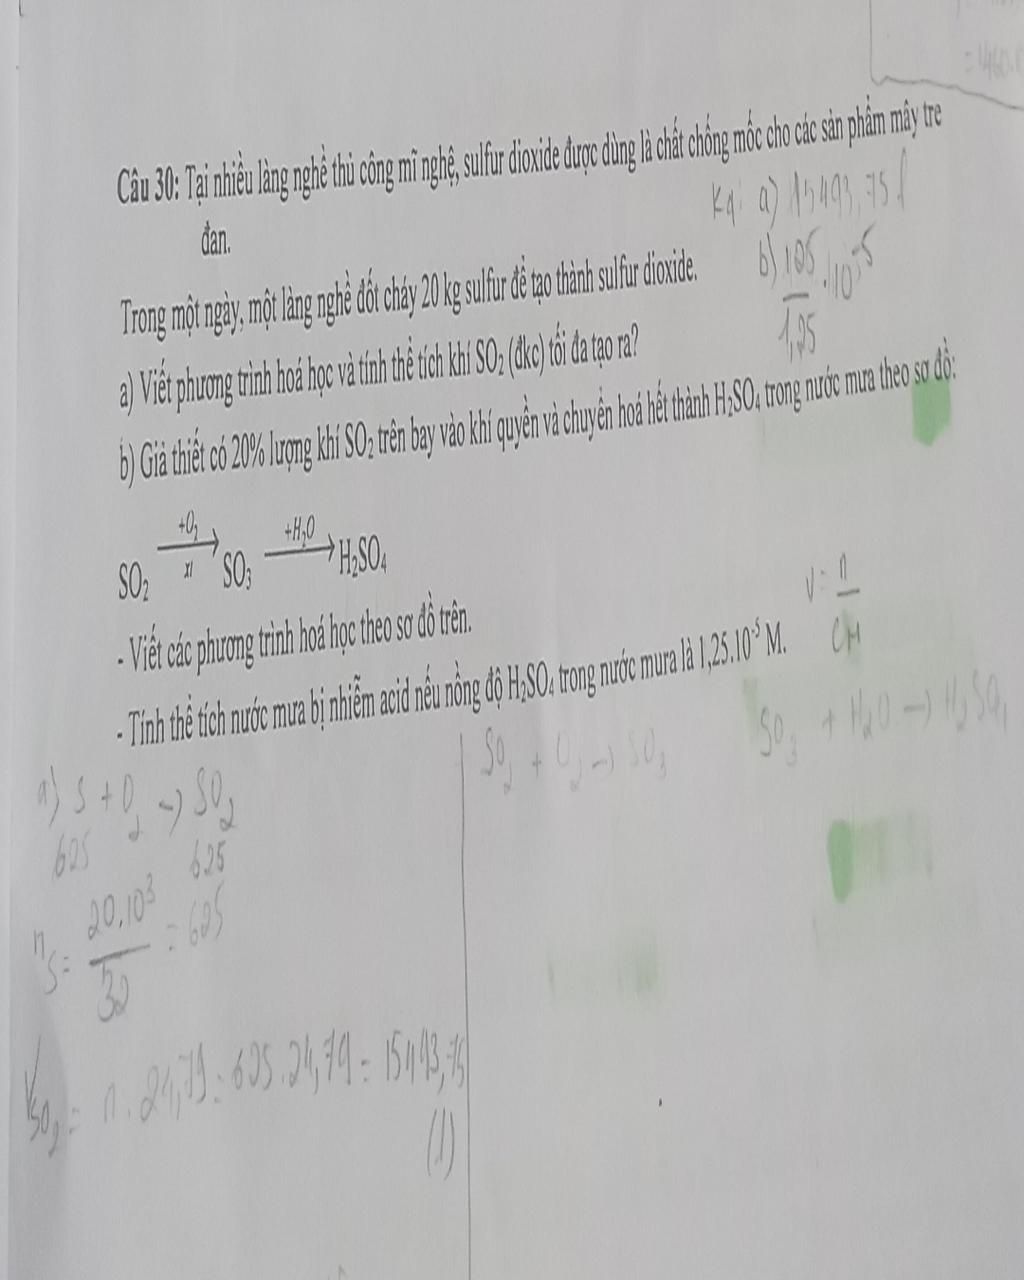 = 460.
Câu 30: Tại nhiều làng nghề thủ công mĩ nghệ, sulfur dioxide được dùng là chất chống mốc cho các sản phẩm mây tre
đan.
Kq: a) 15493,75 l
Trong một ngày, một làng nghề đốt cháy 20 kg sulfur để tạo thành sulfur dioxide.
b) 125/1,25 . 10^-5
a) Viết phương trình hoá học và tính thể tích khí SO₂ (đkc) tối đa tạo ra?
b) Giả thiết có 20% lượng khí SO₂ trên bay vào khí quyển và chuyển hoá hết thành H₂SO₄ trong nước mưa theo sơ đồ:
SO₂ +O₂ → xt SO₃ +H₂O → H₂SO₄
- Viết các phương trình hoá học theo sơ đồ trên.
V = n/CM
- Tính thể tích nước mưa bị nhiễm acid nếu nồng độ H₂SO₄ trong nước mưa là 1,25.10⁻⁵ M.
SO₂ + O₂ → SO₃
SO₃ + H₂O → H₂SO₄
a) S + O₂ → SO₂
625 625
nS = 20.10³/32 = 625
VSO₂ = n . 24,79 = 625 . 24,79 = 15493,75
(l)